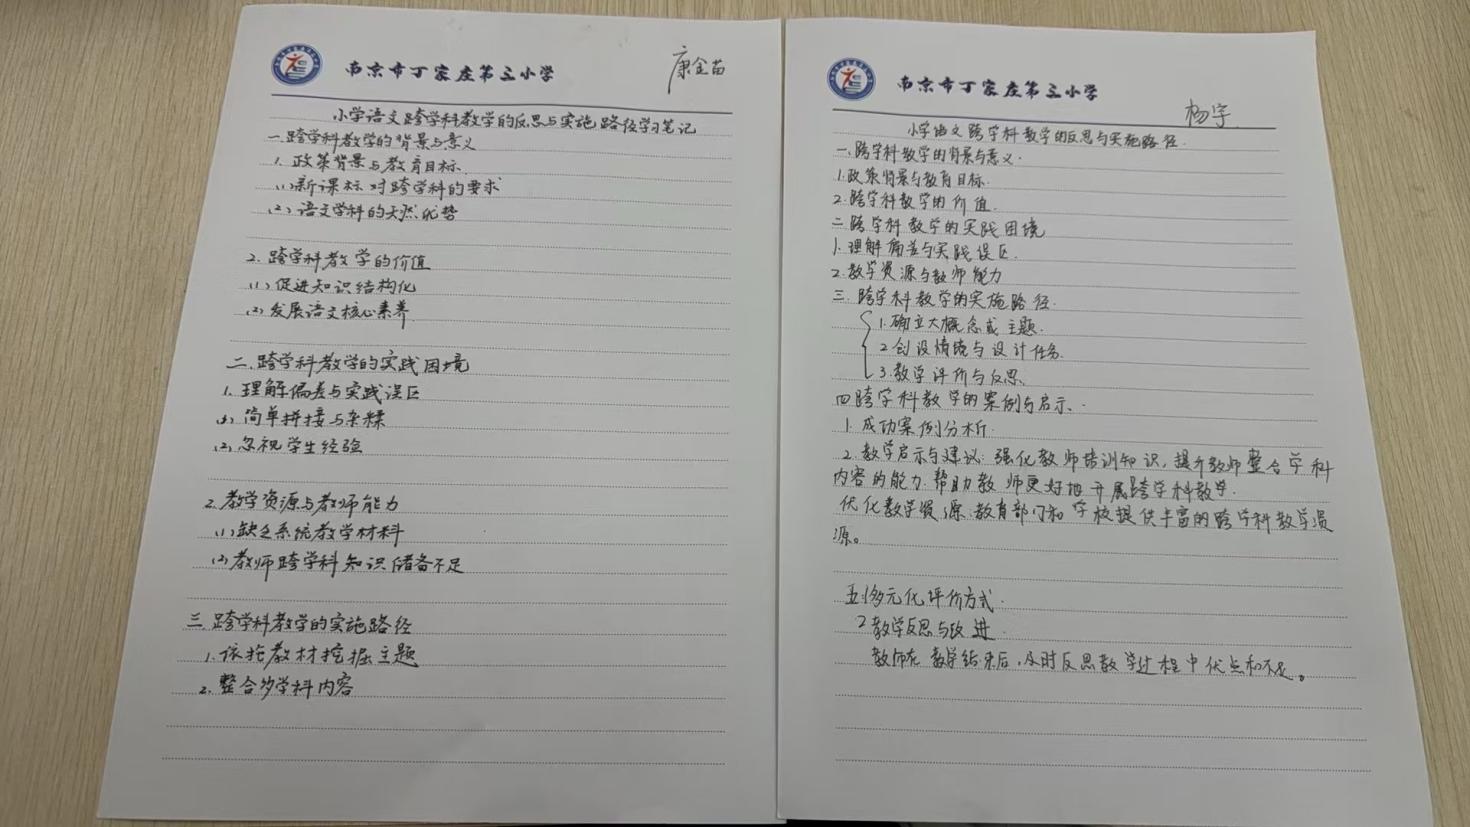 南京市丁家庄第三小学
康金苗
小学语文跨学科教学的反思与实施路径学习笔记
一.跨学科教学的背景与意义
1.政策背景与教育目标.
(1)新课标对跨学科的要求
(2)语文学科的天然优势
2.跨学科教学的价值
(1)促进知识结构化
(2)发展语文核心素养
二.跨学科教学的实践困境
1.理解偏差与实践误区
(1)简单拼接与杂糅
(2)忽视学生经验
2.教学资源与教师能力
(1)缺乏系统教学材料
(2)教师跨学科知识储备不足
三.跨学科教学的实施路径
1.依托教材挖掘主题
2.整合多学科内容
南京市丁家庄第三小学
杨宇
小学语文跨学科教学的反思与实施路径.
一.跨学科教学的背景与意义.
1.政策背景与教育目标.
2.跨学科教学的价值.
二.跨学科教学的实践困境
1.理解偏差与实践误区.
2.教学资源与教师能力
三.跨学科教学的实施路径.
1.确立大概念或主题.
2.创设情境与设计任务.
3.教学评价与反思.
四.跨学科教学的案例与启示.
1.成功案例分析.
2.教学启示与建议:强化教师培训知识,提升教师整合学科
内容的能力.帮助教师更好地开展跨学科教学.
优化教学资源:教育部门和学校提供丰富的跨学科教学资
源。
五.1多元化评价方式.
2教学反思与改进.
教师在教学结束后,及时反思教学过程中优点和不足。